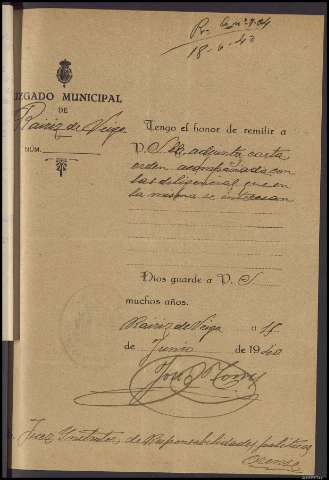 18-6-40
JUZGADO MUNICIPAL
DE
Rairiz de Veiga
NÚM.
Tengo el honor de remitir a
V. S. la adjunta carta
orden acompañada con
las diligencias que en
la misma se interesan
Dios guarde a V. S.
muchos años.
Rairiz de Veiga a 17
de Junio de 1940
Juez Instructor de Responsabilidades politicas
Orense